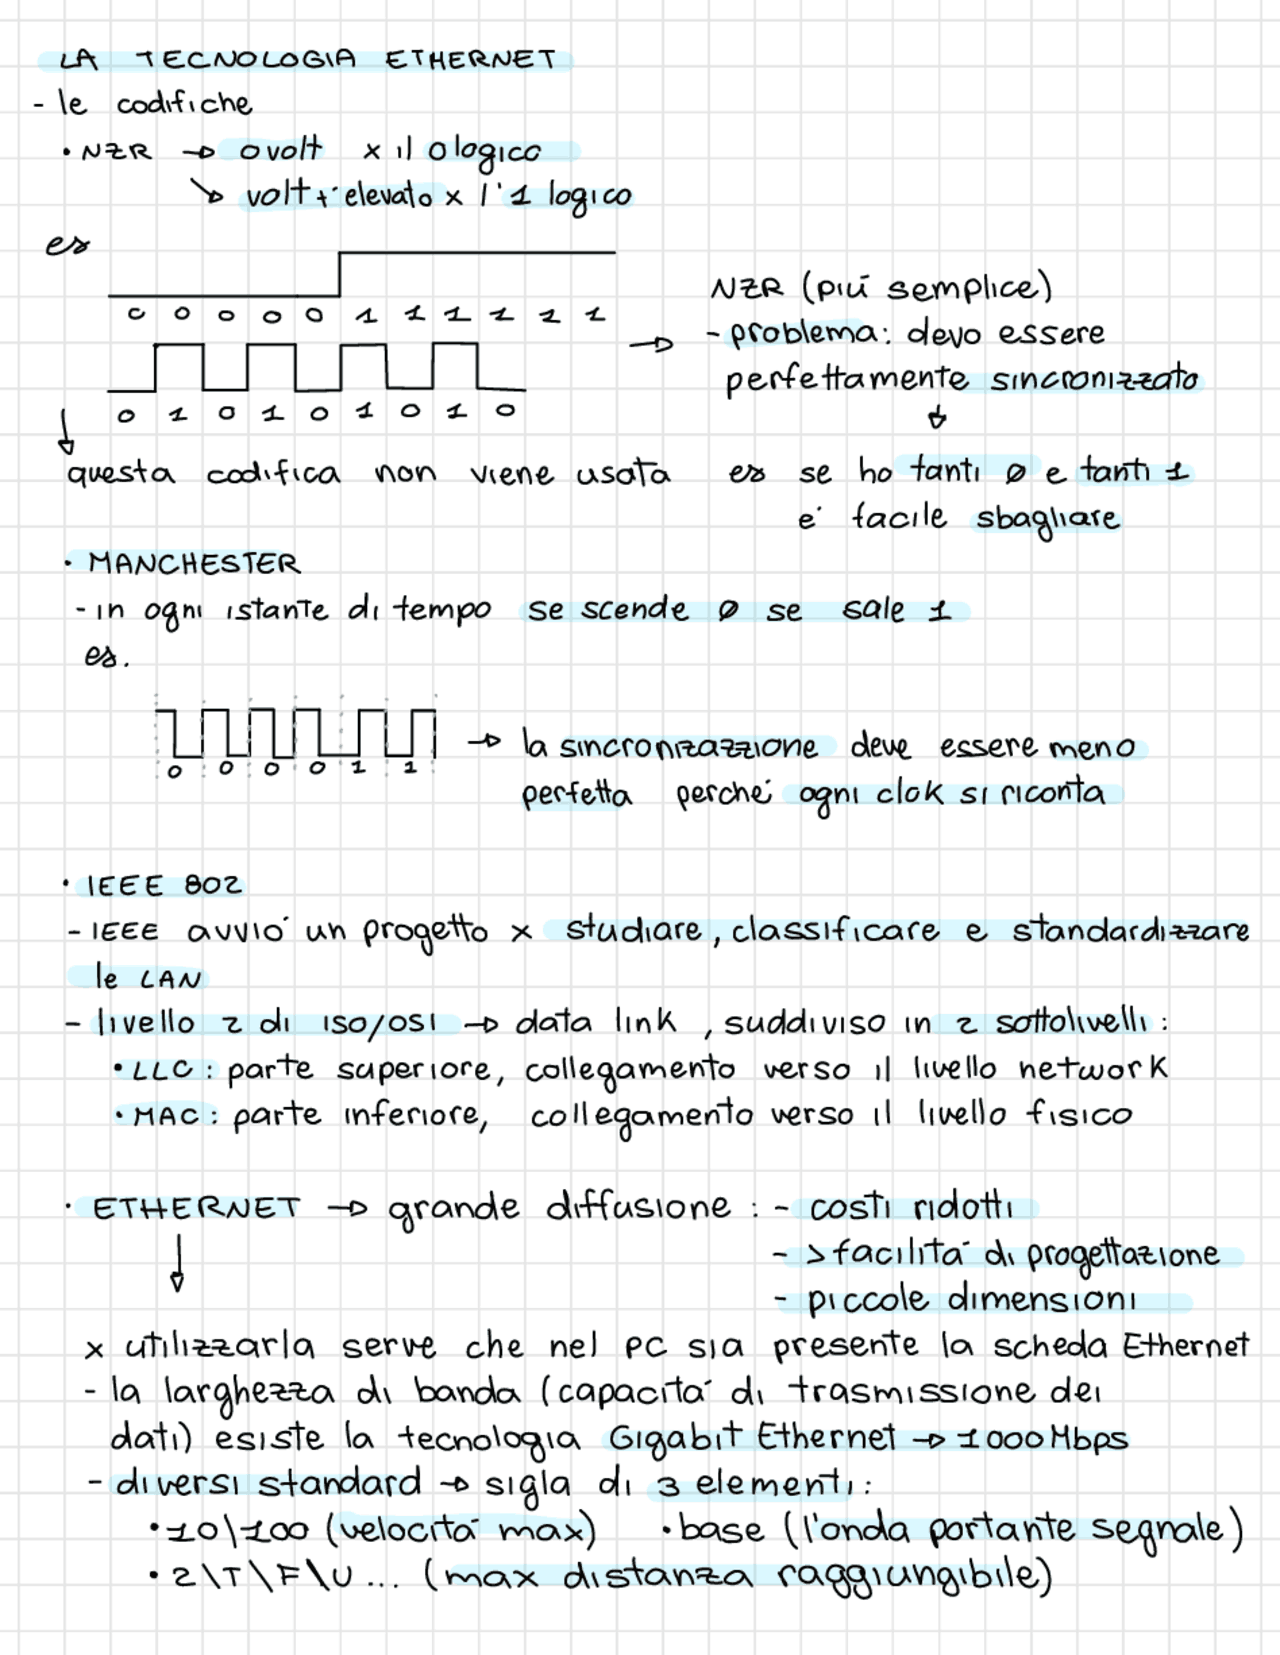 LA TECNOLOGIA ETHERNET
- le codifiche
• NZR → 0 volt x il 0 logico
↘ volt + elevato x l'1 logico
es
0 0 0 0 0 1 1 1 1 1 1
0 1 0 1 0 1 0 1 0
→ NZR (più semplice)
- problema: devo essere
perfettamente sincronizzato
↓
es se ho tanti 0 e tanti 1
e' facile sbagliare
↓
questa codifica non viene usata
• MANCHESTER
- in ogni istante di tempo se scende 0 se sale 1
es.
0 0 0 0 1 1
→ la sincronizazzione deve essere meno
perfetta perché ogni clok si riconta
• IEEE 802
- IEEE avviò un progetto x studiare, classificare e standardizzare
le LAN
- livello 2 di ISO/OSI → data link, suddiviso in 2 sottolivelli:
• LLC: parte superiore, collegamento verso il livello network
• MAC: parte inferiore, collegamento verso il livello fisico
• ETHERNET → grande diffusione: - costi ridotti
- >facilità di progettazione
- piccole dimensioni
↓
x utilizzarla serve che nel PC sia presente la scheda Ethernet
- la larghezza di banda (capacità di trasmissione dei
dati) esiste la tecnologia Gigabit Ethernet → 1000 Mbps
- diversi standard → sigla di 3 elementi:
• 10\100 (velocità max) • base (l'onda portante segnale)
• 2\T\F\U... (max distanza raggiungibile)